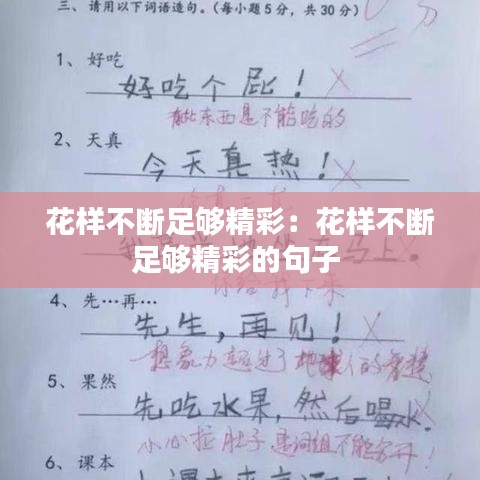 三、请用以下词语造句。（每小题5分，共30分）
1、好吃
好吃个屁！
有些东西是不能吃的
2、天真
今天真热！
花样不断足够精彩：花样不断
足够精彩的句子
马上。
你给我下来
4、先…再…
先生，再见！
想象力超过了地球人的智慧
5、果然
先吃水果，然后喝水。
小心拉肚子 是词组不能分开！
6、课本